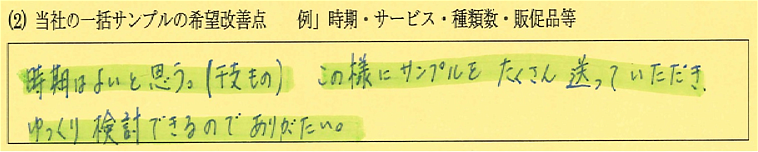 (2) 当社の一括サンプルの希望改善点　例」時期・サービス・種類数・販促品等
時期はよいと思う。(干支もの)　この様にサンプルをたくさん送っていただき、
ゆっくり検討できるのでありがたい。